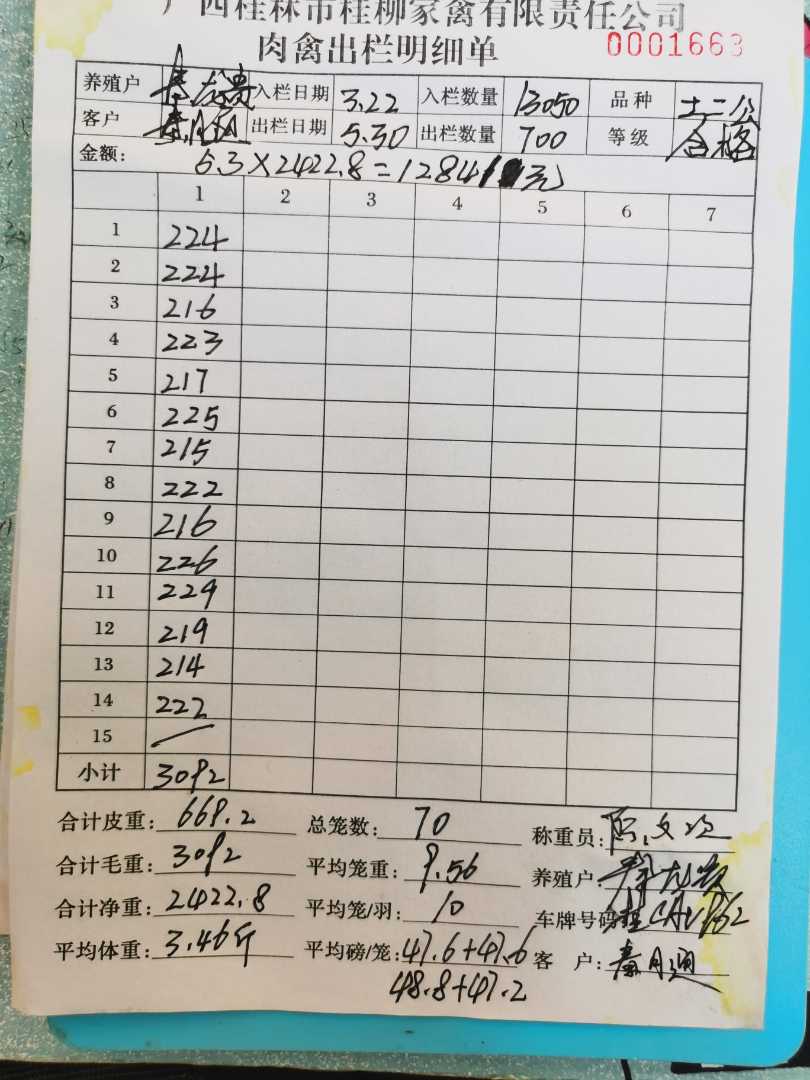 广西桂林市桂柳家禽有限责任公司
肉禽出栏明细单 0001663
养殖户 入栏日期 3.22 入栏数量 13050 品种 土二公
客户 出栏日期 5.30 出栏数量 700 等级 合格
金额: 5.3×2422.8=12841 元
1 2 3 4 5 6 7
1 224
2 224
3 216
4 223
5 217
6 225
7 215
8 222
9 216
10 226
11 229
12 219
13 214
14 222
15
小计 3092
合计皮重: 669.2 总笼数: 70 称重员:
合计毛重: 3092 平均笼重: 9.56 养殖户:
合计净重: 2422.8 平均笼/羽: 10 车牌号码:
平均体重: 3.46斤 平均磅/笼: 47.6+47.6 客 户:
48.8+47.2